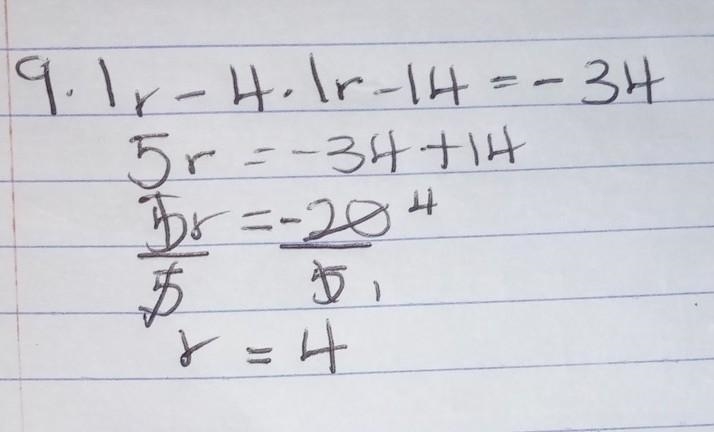 9.1r - 4.1r - 14 = - 34
5r = - 34 + 14
5r = -20 4
5 5 1
r = 4